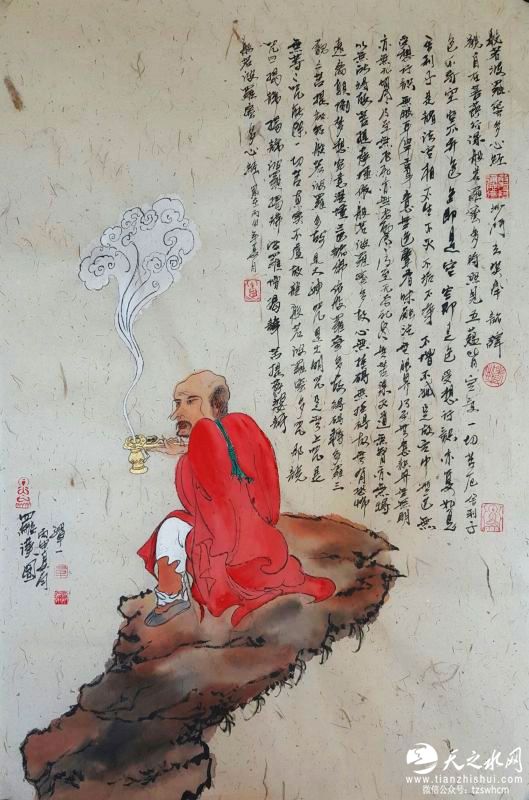 般若波羅蜜多心經 沙門玄奘奉詔譯
觀自在菩薩行深般若波羅蜜多時照見五蘊皆空度一切苦厄舍利子
色不異空空不異色色即是空空即是色受想行識亦復如是
舍利子是諸法空相不生不滅不垢不淨不增不減是故空中無色無
受想行識無眼耳鼻舌身意無色聲香味觸法無眼界乃至無意識界無無明
亦無無明盡乃至無老死亦無老死盡無苦集滅道無智亦無得
以無所得故菩提薩埵依般若波羅蜜多故心無罣礙無罣礙故無有恐怖
遠離顛倒夢想究竟涅槃三世諸佛依般若波羅蜜多故得阿耨多羅三
藐三菩提故知般若波羅蜜多是大神咒是大明咒是無上咒是
無等等咒能除一切苦真實不虛故說般若波羅蜜多咒即說
咒曰揭諦揭諦波羅揭諦波羅僧揭諦菩提薩婆訶
般若波羅蜜多心經 丙申年夏月
羅漢圖
丙申夏月
天之水网
www.tianzhishui.com
微信公众号：tzswhcm